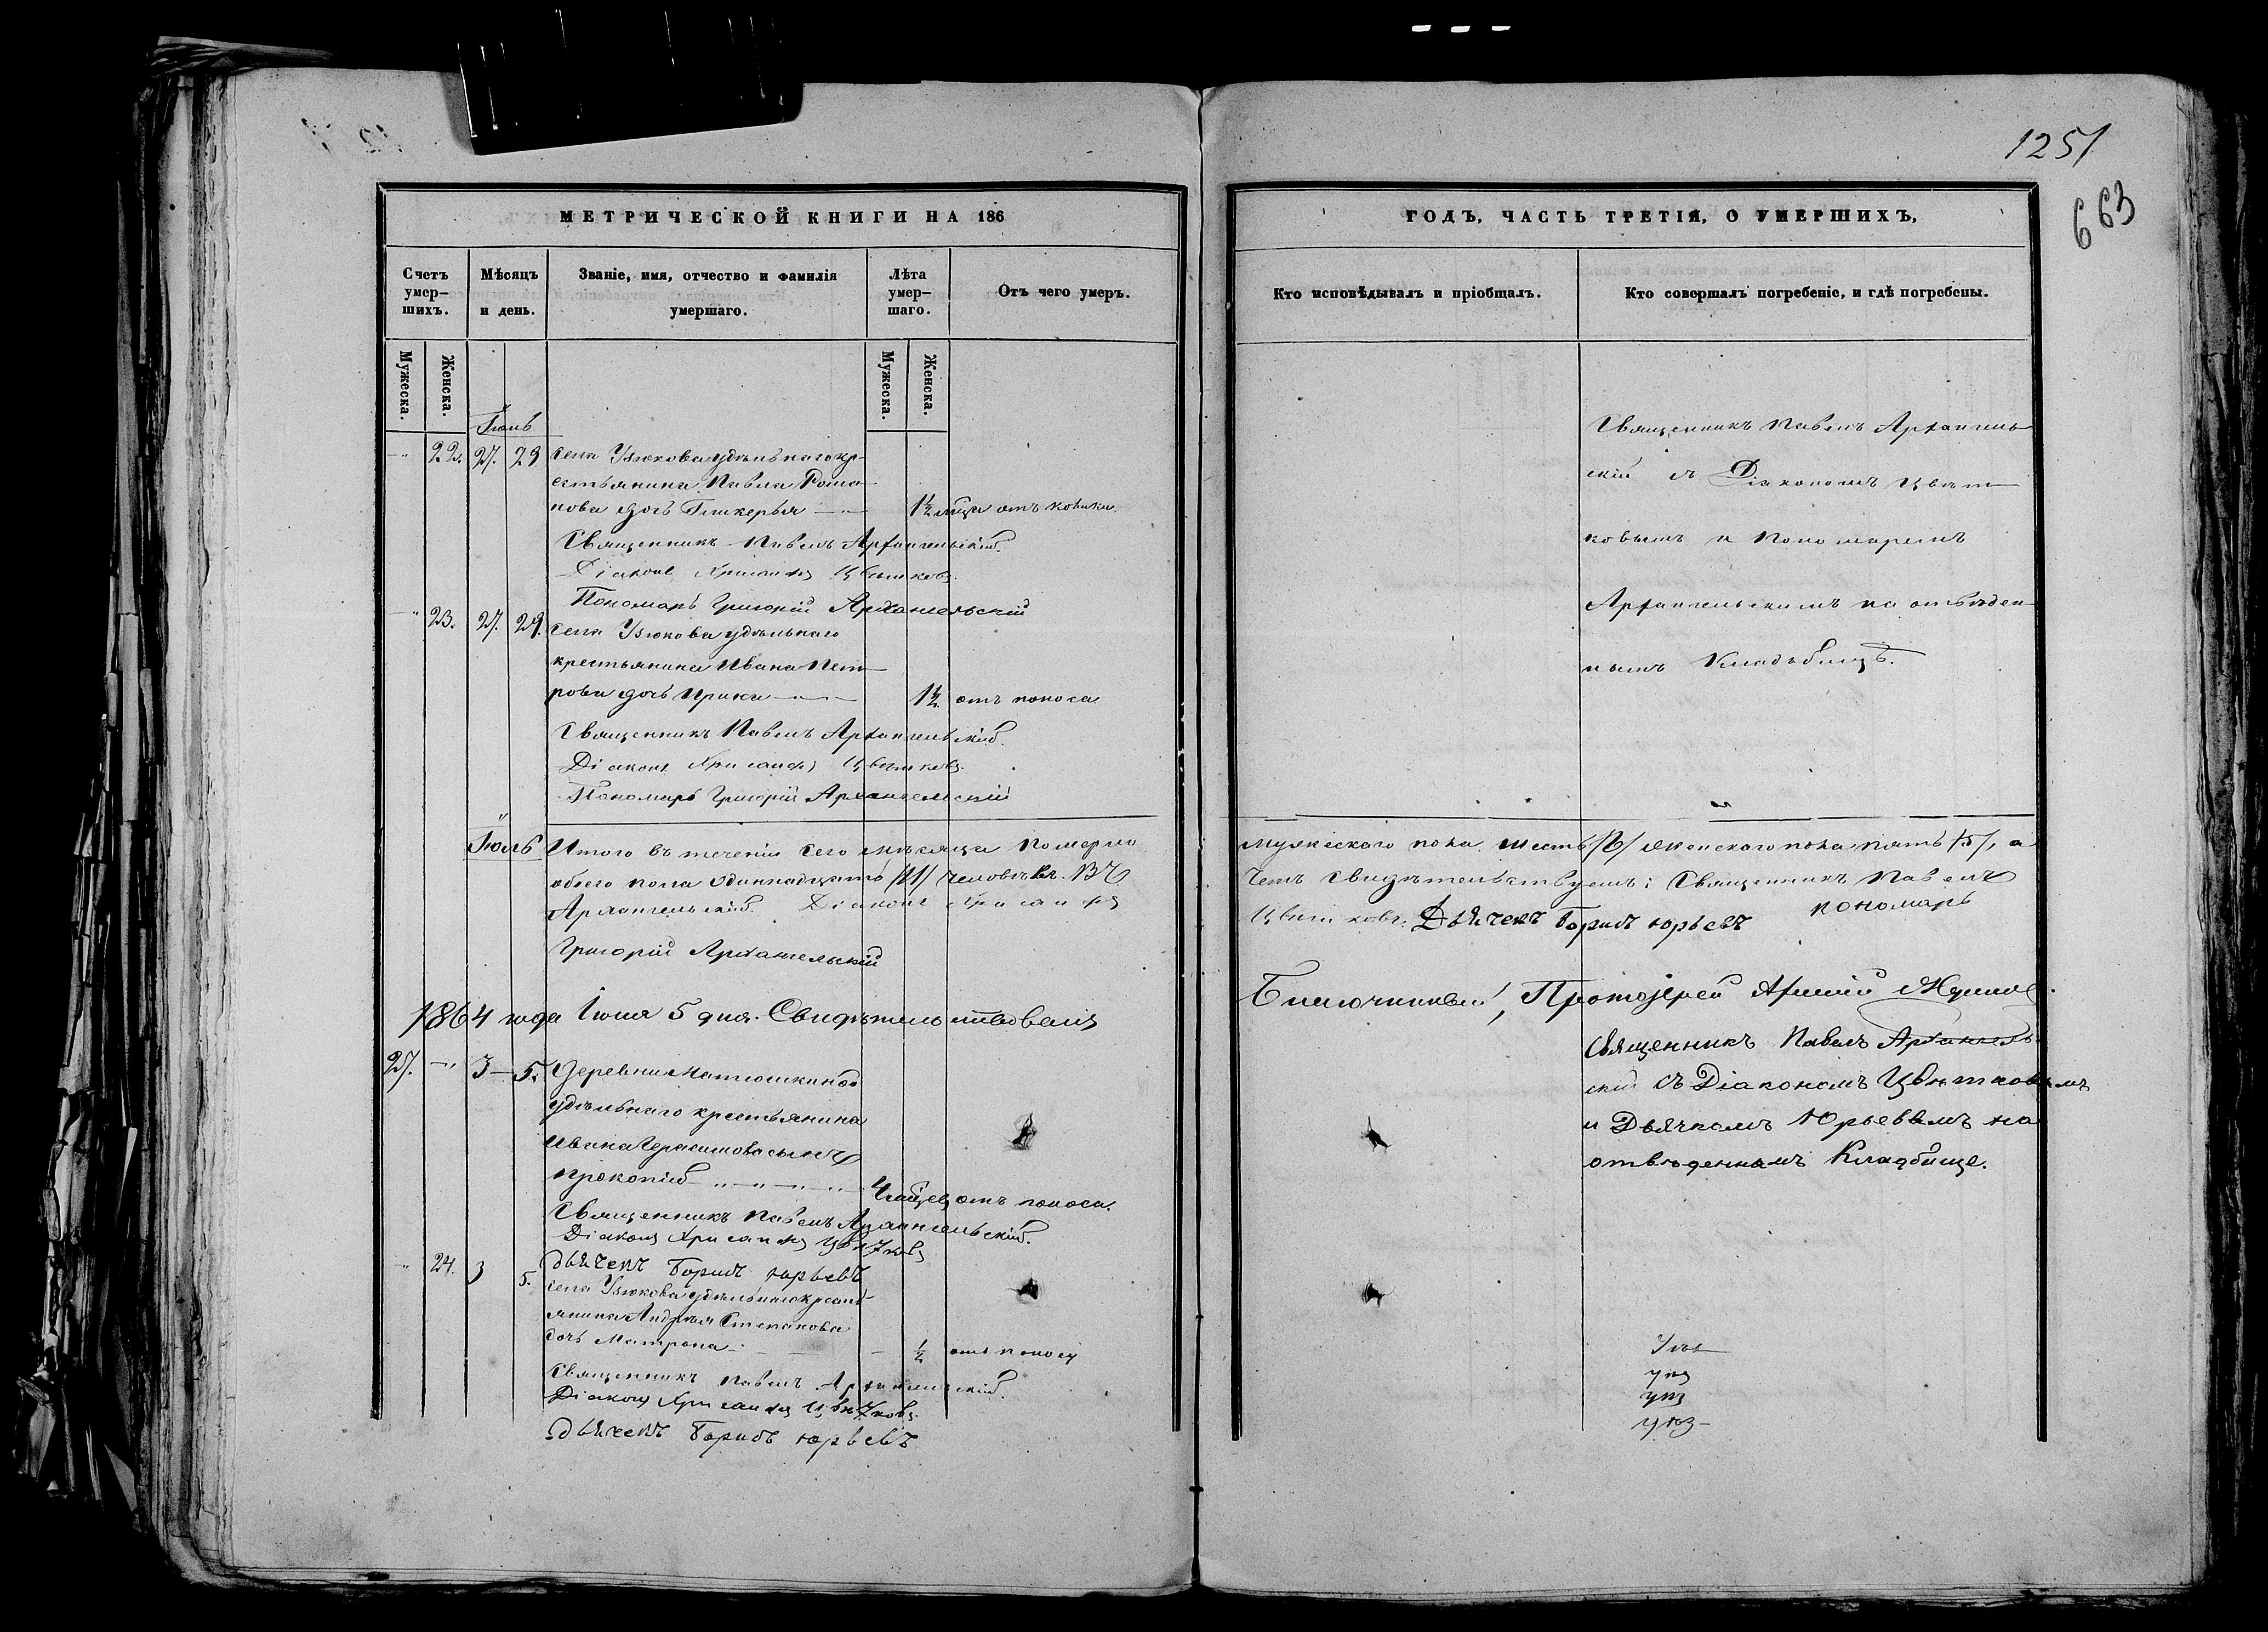 1251
663
МЕТРИЧЕСКОЙ КНИГИ НА 186
Счетъ умер-шихъ.
Мѣсяцъ и день.
Званіе, имя, отчество и фамилія умершаго.
Лѣта умер-шаго.
Отъ чего умеръ.
Мужеска.
Женска.
Мужеска.
Женска.
Іюнь
22. 27. 29 села Узюкова удѣльнаго кр-
естьянина Павла Рома-
нова дочь Гликерья 1½
Священникъ Павелъ Архангельскій.
Діаконъ Хрисанфъ Цвѣтковъ.
Пономарь Григорій Архангельскій
23. 27. 29. села Узюкова удѣльнаго
крестьянина Ивана Пет-
рова дочь Ирина 1½ отъ поноса
Священникъ Павелъ Архангельскій.
Діаконъ Хрисанфъ Цвѣтковъ.
Пономарь Григорій Архангельскій
Іюль Итого въ теченіи сего мѣсяца померло
обоего пола одиннадцать /11/ человѣкъ. Въ
Архангельскій. Діаконъ Хрисанфъ
Григорій Архангельскій
1864 года Іюля 5 дня. Свидѣтельствовалъ
25. 3 5. Деревни Матюшкиной
удѣльнаго крестьянина
Ивана Герасимова сынъ
Прокопій 4 отъ поноса.
Священникъ Павелъ Архангельскій.
Діаконъ Хрисанфъ Цвѣтковъ
дьячекъ Борисъ Юрьевъ
24. 3 5. села Узюкова удѣльнаго кресть-
янина Андрея Степанова
дочь Матрона ½ отъ поносу
Священникъ Павелъ Архангельскій.
Діаконъ Хрисанфъ Цвѣтковъ.
дьячекъ Борисъ Юрьевъ
ГОДЪ, ЧАСТЬ ТРЕТІЯ, О УМЕРШИХЪ,
Кто исповѣдывалъ и пріобщалъ.
Кто совершалъ погребеніе, и гдѣ погребены.
Священникъ Павелъ Архангель-
скій съ Діакономъ Цвѣт-
ковымъ и Пономаремъ
Архангельскимъ на отвѣден-
номъ Кладбищѣ.
мужескаго пола шесть /6/ женскаго пола пять /5/, о
чемъ свидѣтельствуемъ: Священникъ Павелъ
Цвѣтковъ. Дьячекъ Борисъ Юрьевъ пономарь
Благочинный, Протоіерей
Священникъ Павелъ Архангель-
скій съ Діакономъ Цвѣтковымъ
и Дьячкомъ Юрьевымъ на
отвѣденномъ Кладбище.